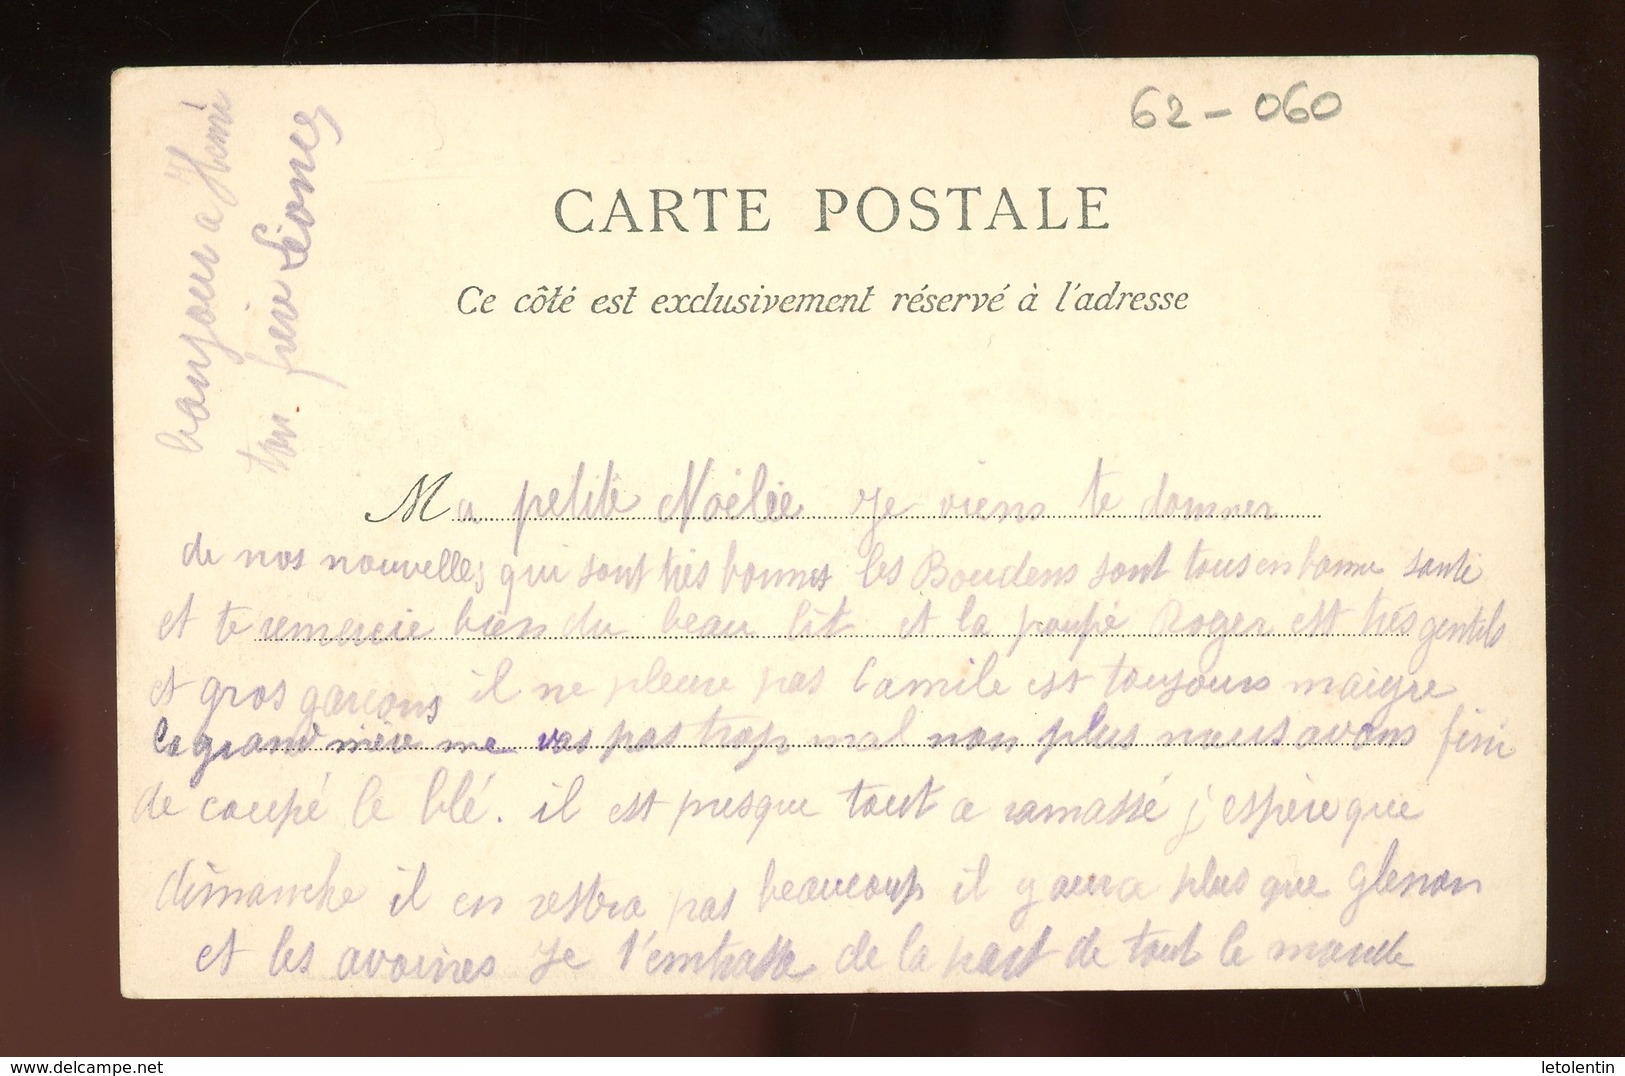 62-060
CARTE POSTALE
Ce côté est exclusivement réservé à l'adresse
Ma petite Noëlie Je viens te donner
de nos nouvelles qui sont très bonnes les Boudens sont tous en bonne santé
et te remercie bien du beau lit et la poupé Roger est très gentils
et gros garcons il ne pleure pas Camile est toujours maigre
la grand mère me vas pas trop mal non plus nous avons fini
de coupé le blé. il est presque tout a ramassé j'espère que
dimanche il en restra pas beaucoup il y aura plus que glenon
et les avoines Je t'embrasse de la part de tout le monde
bonjour a
ton frère Léonce
delcampe.net
letolentin